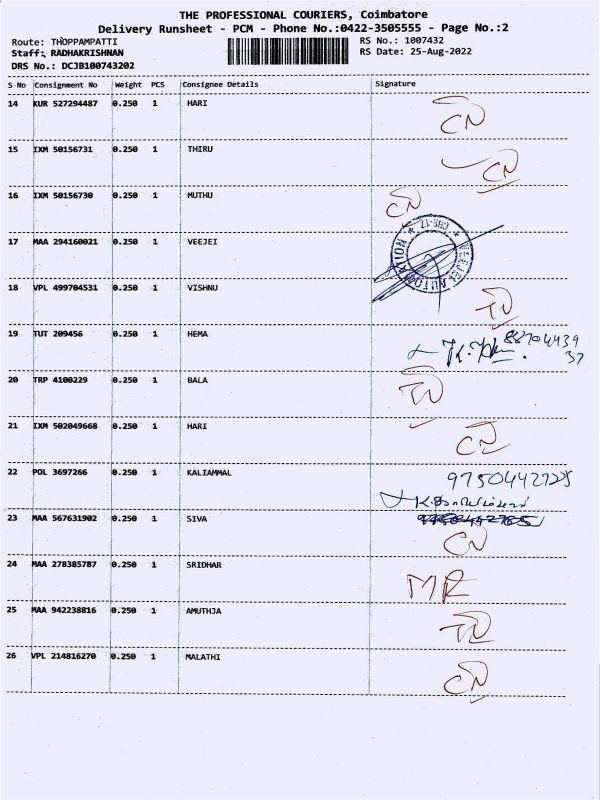 THE PROFESSIONAL COURIERS, Coimbatore
Delivery Runsheet - PCM - Phone No.:0422-3505555 - Page No.:2
Route: THOPPAMPATTI RS No.: 1007432
Staff: RADHAKRISHNAN RS Date: 25-Aug-2022
DRS No.: DCJB100743202
S No Consignment No Weight PCS Consignee Details Signature
14 KUR 527294487 0.250 1 HARI
15 IXM 50156731 0.250 1 THIRU
16 IXM 50156730 0.250 1 MUTHU
17 MAA 294160021 0.250 1 VEEJEI
18 VPL 499704531 0.250 1 VISHNU
19 TUT 209456 0.250 1 HEMA
20 TRP 4100229 0.250 1 BALA
21 IXM 502049668 0.250 1 HARI
22 POL 3697266 0.250 1 KALIAMMAL
23 MAA 567631902 0.250 1 SIVA
24 MAA 278385787 0.250 1 SRIDHAR MR
25 MAA 942238816 0.250 1 AMUTHJA
26 VPL 214816270 0.250 1 MALATHI